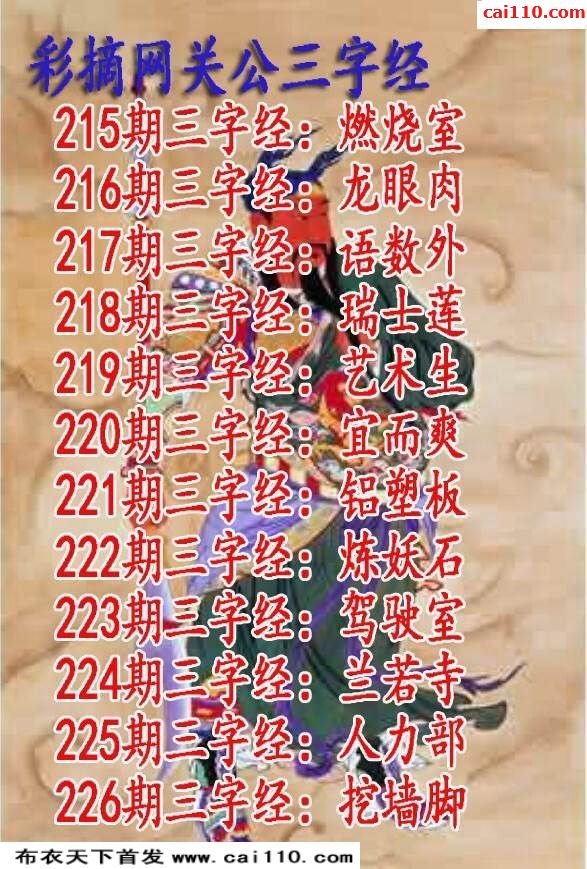 cai110.com
彩摘网关公三字经
215期三字经：燃烧室
216期三字经：龙眼肉
217期三字经：语数外
218期三字经：瑞士莲
219期三字经：艺术生
220期三字经：宜而爽
221期三字经：铝塑板
222期三字经：炼妖石
223期三字经：驾驶室
224期三字经：兰若寺
225期三字经：人力部
226期三字经：挖墙脚
布衣天下首发 www.cai110.com